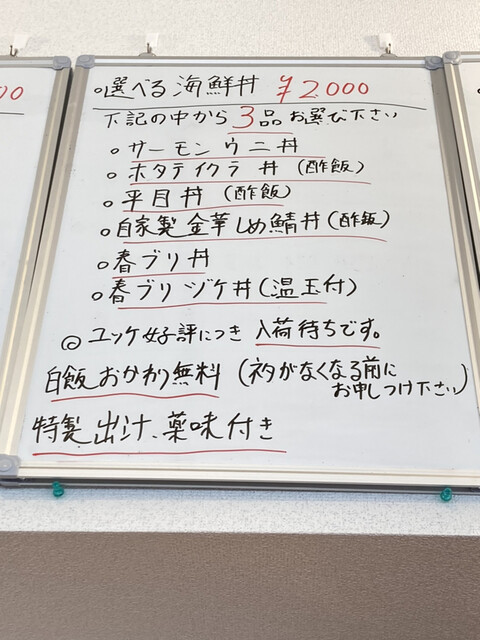 ○選べる海鮮丼 ¥2000
下記の中から3品お選び下さい
○サーモンウニ丼
○ホタテイクラ丼(酢飯)
○平目丼(酢飯)
○自家製金華しめ鯖丼(酢飯)
○春ブリ丼
○春ブリヅケ丼(温玉付)
◎ユッケ好評につき入荷待ちです。
白飯おかわり無料(ネタがなくなる前に
お申しつけ下さい)
特製出汁、薬味付き
00